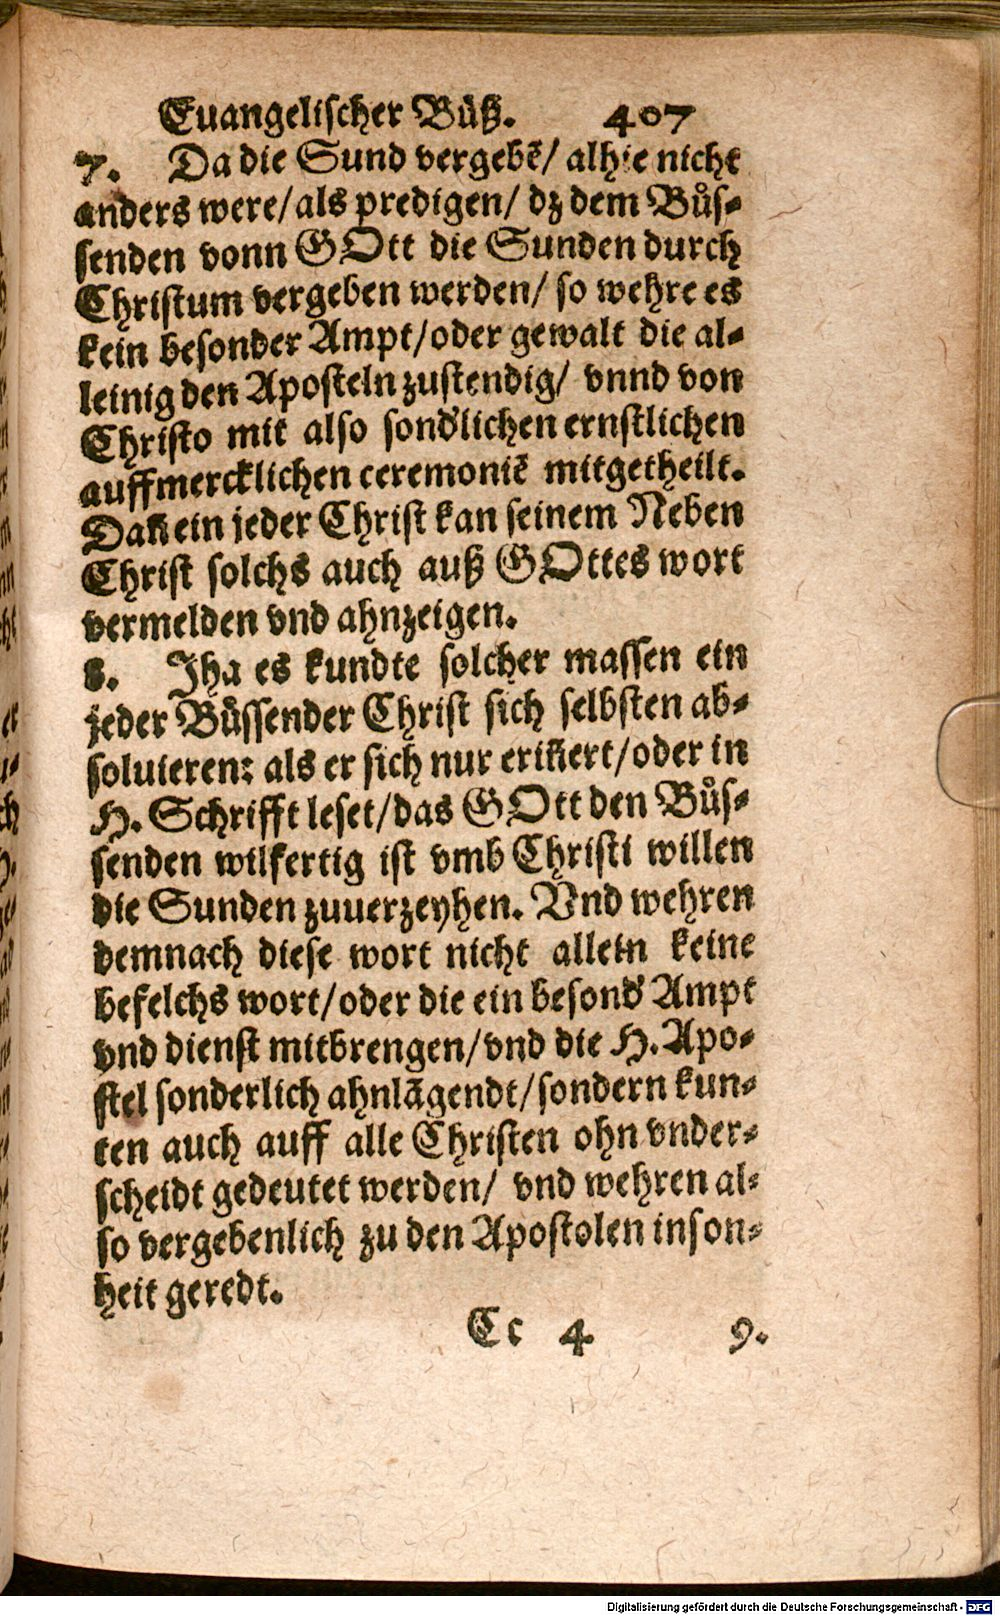 Euangelischer Bůß. 407
7. Da die Sund vergebē/ alhie nicht
anders were/als predigen/ dz dem Bůs-
senden vonn GOtt die Sunden durch
Christum vergeben werden/ so wehre es
kein besonder Ampt/oder gewalt die al-
leinig den Aposteln zustendig/ vnnd von
Christo mit also sond'lichen ernstlichen
auffmercklichen ceremoniē mitgetheilt.
Dan̄ ein jeder Christ kan seinem Neben
Christ solchs auch auß GOttes wort
vermelden vnd ahnzeigen.
8. Jha es kundte solcher massen ein
jeder Bůssender Christ sich selbsten ab-
soluieren: als er sich nur erin̄ert/oder in
H. Schrifft leset/das GOtt den Bůs-
senden wilfertig ist vmb Christi willen
die Sunden zuuerzeyhen. Vnd wehren
demnach diese wort nicht allein keine
befelchs wort/oder die ein besond' Ampt
vnd dienst mitbrengen/vnd die H. Apo-
stel sonderlich ahnlāgendt/sondern kun-
ten auch auff alle Christen ohn vnder-
scheidt gedeutet werden/ vnd wehren al-
so vergebenlich zu den Apostolen inson-
heit geredt.
Cc 4 9.
Digitalisierung gefördert durch die Deutsche Forschungsgemeinschaft - DFG